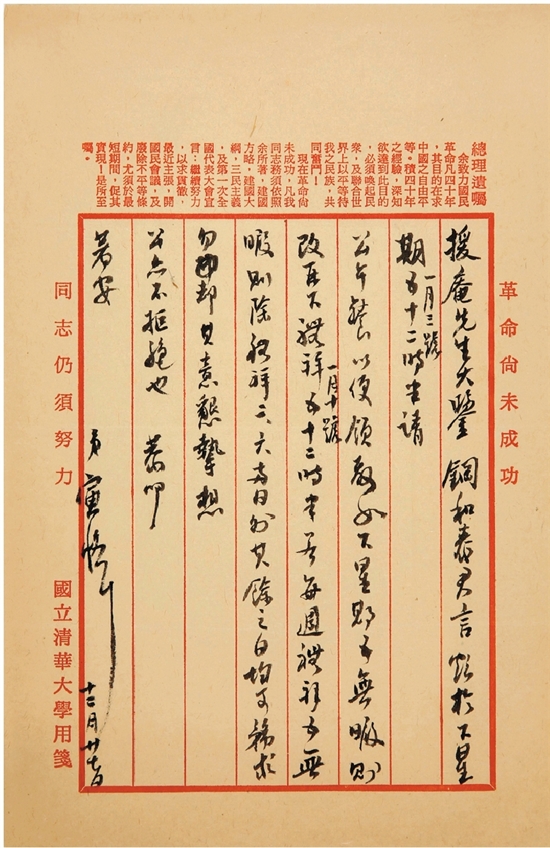 總理遺囑
余致力國民
革命凡四十年
,其目的在求
中國之自由平
等。積四十年
之經驗,深知
欲達到此目的
,必須喚起民
衆,及聯合世
界上以平等待
我之民族,共
同奮鬥!
現在革命尙
未成功,凡我
同志務須依照
余所著,建國
方略,建國大
綱,三民主義
,及第一次全
國代表大會宣
言;繼續努力
,以求貫徹,
最近主張,開
國民會議,及
廢除不平等條
約,尤須於最
短期間,促其
實現!是所至
囑。
革命尙未成功
援庵先生大鑒 鋼和泰君言欲於下星
期五十二時半請
一月三號
公午餐以便領教如下星期五無暇則
改再下禮拜五十二時半若每週禮拜五無
一月十號
暇則除禮拜二六兩日外其餘之日均可務求
勿卻其意懇摯想
公亦不拒絕也 恭叩
著安
弟寅恪 十二月廿七日
同志仍須努力
國立清華大學用箋